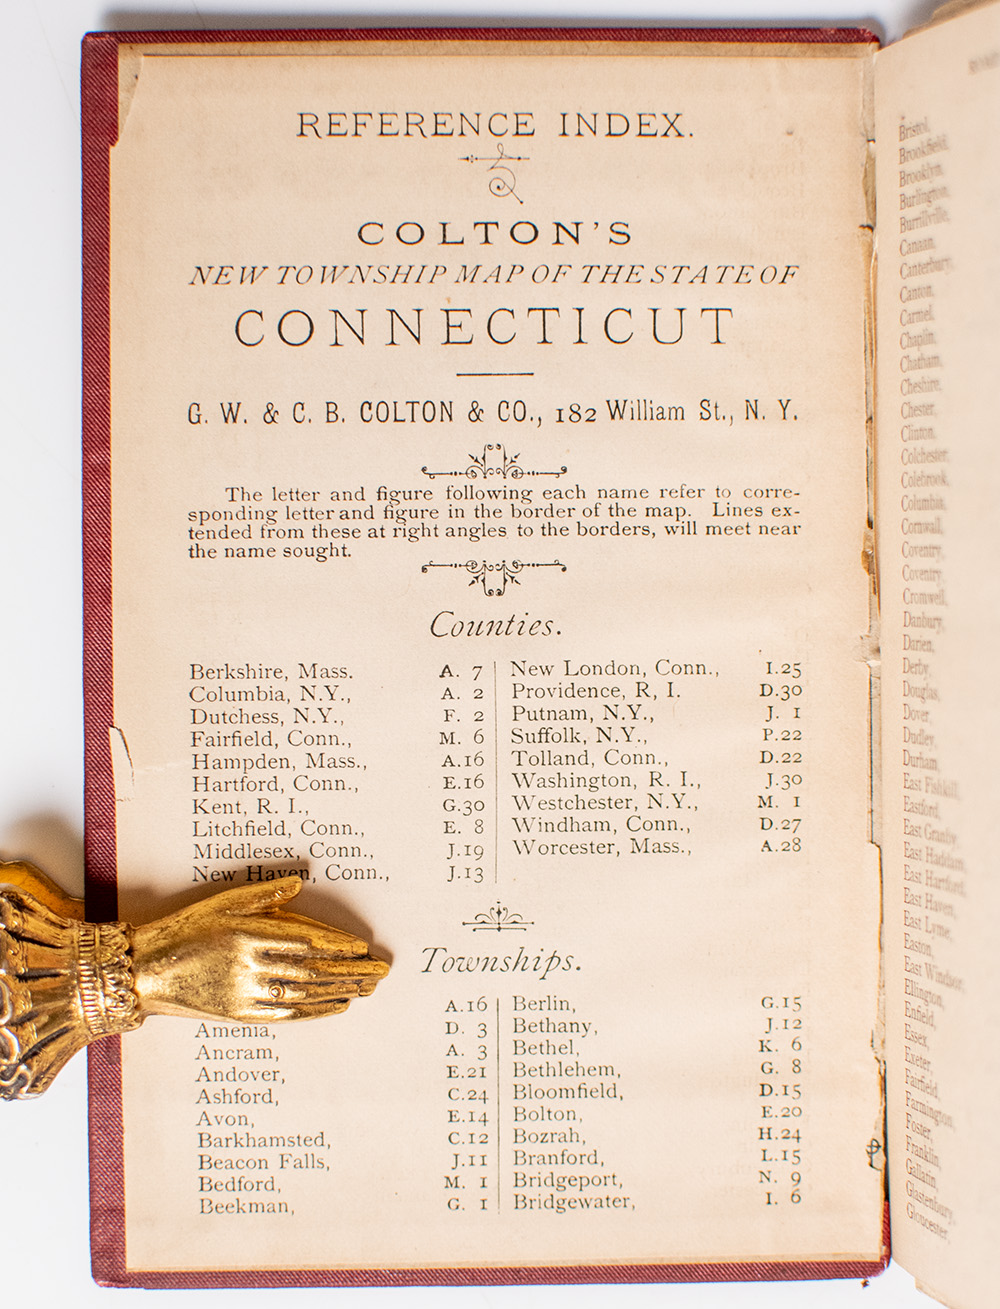 REFERENCE INDEX.
COLTON'S
NEW TOWNSHIP MAP OF THE STATE OF
CONNECTICUT
G. W. & C. B. COLTON & CO., 182 William St., N. Y.
The letter and figure following each name refer to corre-
sponding letter and figure in the border of the map. Lines ex-
tended from these at right angles to the borders, will meet near
the name sought.
Counties.
Berkshire, Mass. A. 7
Columbia, N.Y., A. 2
Dutchess, N.Y., F. 2
Fairfield, Conn., M. 6
Hampden, Mass., A.16
Hartford, Conn., E.16
Kent, R. I., G.30
Litchfield, Conn., E. 8
Middlesex, Conn., J.19
New Haven, Conn., J.13
New London, Conn., I.25
Providence, R, I. D.30
Putnam, N.Y., J. 1
Suffolk, N.Y., P.22
Tolland, Conn., D.22
Washington, R. I., J.30
Westchester, N.Y., M. 1
Windham, Conn., D.27
Worcester, Mass., A.28
Townships.
A.16
Amenia, D. 3
Ancram, A. 3
Andover, E.21
Ashford, C.24
Avon, E.14
Barkhamsted, C.12
Beacon Falls, J.11
Bedford, M. 1
Beekman, G. 1
Berlin, G.15
Bethany, J.12
Bethel, K. 6
Bethlehem, G. 8
Bloomfield, D.15
Bolton, E.20
Bozrah, H.24
Branford, L.15
Bridgeport, N. 9
Bridgewater, I. 6
Bristol,
Brookfield,
Brooklyn,
Burlington,
Burrillville,
Canaan,
Canterbury,
Canton,
Carmel,
Chaplin,
Chatham,
Cheshire,
Chester,
Clinton,
Colchester,
Colebrook,
Columbia,
Cornwall,
Coventry,
Coventry,
Cromwell,
Danbury,
Darien,
Derby,
Douglas,
Dover,
Dudley,
Durham,
East Fishkill,
Eastford,
East Granby,
East Haddam,
East Hartford,
East Haven,
East Lyme,
Easton,
East Windsor,
Ellington,
Enfield,
Essex,
Exeter,
Fairfield,
Farmington,
Foster,
Franklin,
Gallatin,
Glastenbury,
Gloucester,